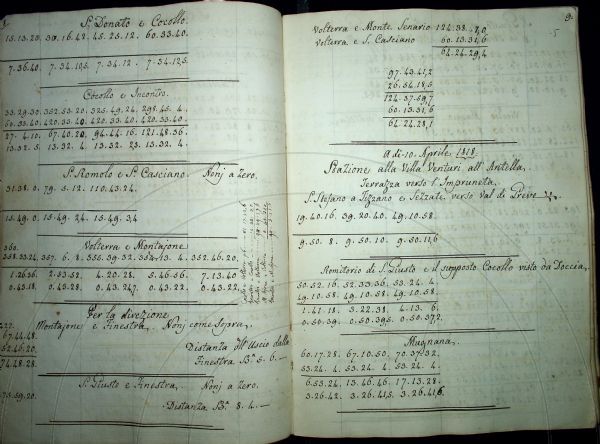 S. Donato e Cocollo.
15.13.20. 30.16.42. 45.25.12. 60.33.40.
7.36.40. 7.34.10,5. 7.34.12. 7.34.12,5.
Cocollo e Incontro.
33.29.30. 352.53.20. 325.49.24. 298.45.4.
60.33.40. 420.33.40. 420.33.40. 420.33.40.
27.4.10. 67.40.20. 94.44.16. 121.48.36.
13.32.5. 13.32.4. 13.32.23. 13.32.4.
S. Romolo e S. Casciano. Nonj a Zero.
31.38.0. 79.5.12. 110.43.24.
15.49.0. 15.49.24. 15.49.34
Volterra e Montajone
360.
358.33.24. 357.6.8. 355.39.32. 354.13.4. 352.46.20.
1.26.36. 2.53.52. 4.20.28. 5.46.56. 7.13.40
0.43.18. 0.43.28. 0.43.24,7. 0.43.22. 0.43.22.
Per la direzione
Montajone e Finestra. Nonj come Sopra.
67.44.48.
52.46.20.
74.48.28.
Distanza dall'Uscio della
Finestra B.a 5.6.—
S. Giusto e Finestra. Nonj a Zero.
75.59.20.
Distanza B.a 8.4.—
9.
Volterra e Monte Senario 124.38.1,0
Volterra e S. Casciano 60.13.31,6
64.24.29,4
97.43.41,2
26.54.18,5
124.37.59,7
60.13.31,6
64.24.28,1
A dì 10. Aprile 1818.
Stazione alla Villa Venturi all'Antella.
Terrazza verso l'Impruneta.
S. Stefano a Tizzano e Sezzate verso Val di Greve
19.40.16. 39.20.40. 49.10.58.
9.50.8. 9.50.10. 9.50.11,6
Romitorio di S. Giusto e il supposto Cocollo visto da Doccia.
50.52.16. 52.33.36. 53.24.4.
49.10.58. 49.10.58. 49.10.58.
1.41.18. 3.22.38. 4.13.6.
0.50.39. 0.50.39,5. 0.50.37,2.
Mugnana.
60.17.28. 67.10.50. 70.37.32.
53.24.4. 53.24.4. 53.24.4.
6.53.24. 13.46.46. 17.13.28.
3.26.42. 3.26.41,5. 3.26.41,6.